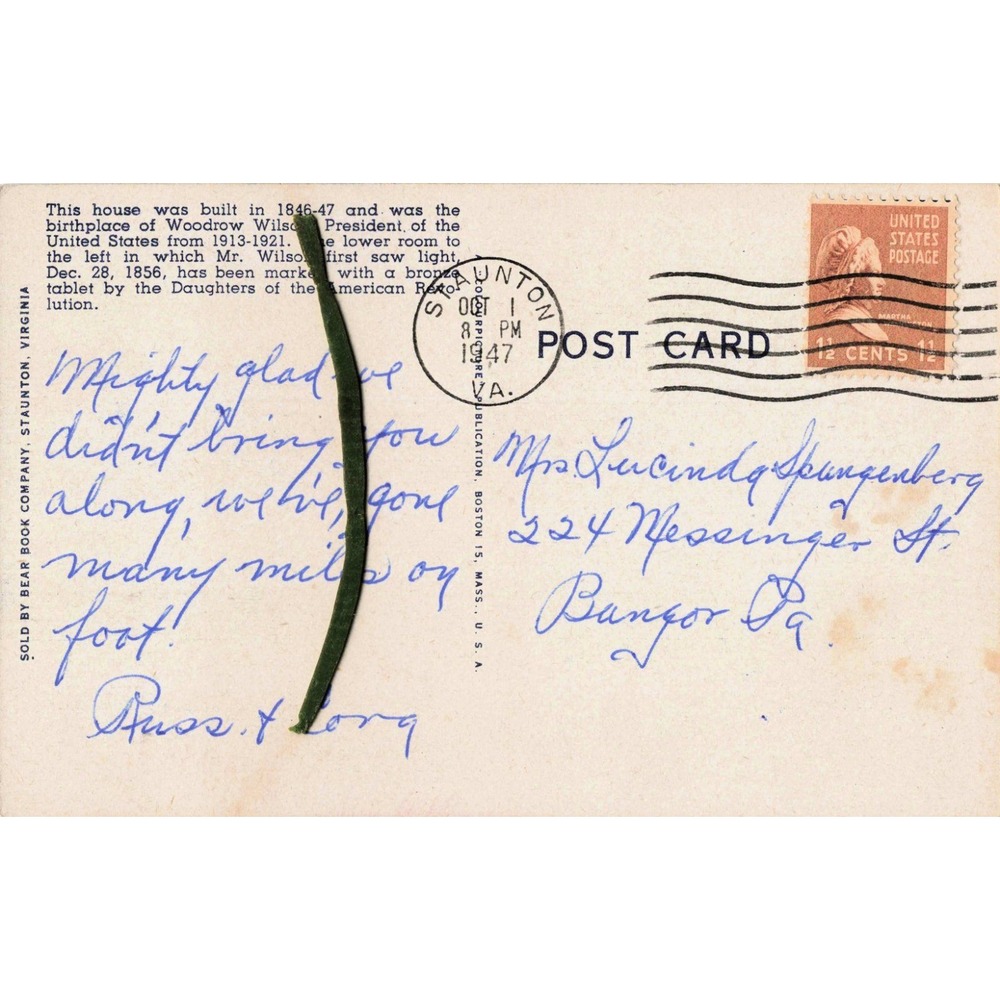 This house was built in 1846-47 and was the
birthplace of Woodrow Wilson President of the
United States from 1913-1921. The lower room to
the left in which Mr. Wilson first saw light,
Dec. 28, 1856, has been marked with a bronze
tablet by the Daughters of the American Revo-
lution.
SOLD BY BEAR BOOK COMPANY, STAUNTON, VIRGINIA
Mighty glad we
didn't bring you
along, we've gone
many miles on
foot.
Russ. &
A COLOURPICTURE PUBLICATION, BOSTON 15, MASS., U. S. A.
STAUNTON
OCT 1
8 PM
1947
VA.
POST CARD
UNITED
STATES
POSTAGE
MARTHA
WASHINGTON
1½ CENTS 1½
Mrs Lucinda Spangenberg
224 Messinger St.
Bangor Pa.